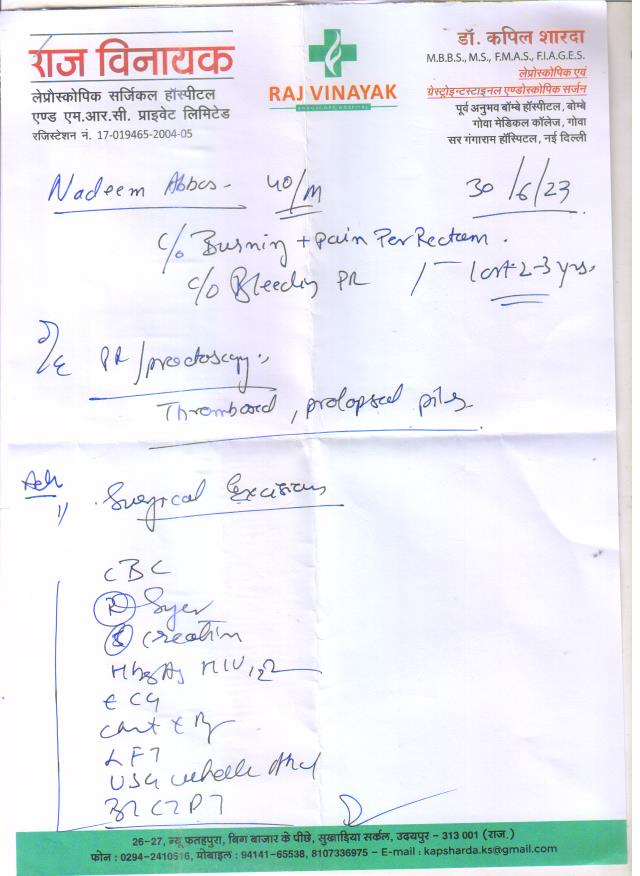 राज विनायक
लेप्रोस्कोपिक सर्जिकल हॉस्पीटल
एण्ड एम.आर.सी. प्राइवेट लिमिटेड
रजिस्टेशन नं. 17-019465-2004-05
RAJ VINAYAK
डॉ. कपिल शारदा
M.B.B.S., M.S., F.M.A.S., F.I.A.G.E.S.
लेप्रोस्कोपिक एवं
गेस्ट्रोइन्टस्टाइनल एण्डोस्कोपिक सर्जन
पूर्व अनुभव बॉम्बे हॉस्पिटल, बोम्बे
गोवा मेडिकल कॉलेज, गोवा
सर गंगाराम हॉस्पिटल, नई दिल्ली
Nadeem Abbas - 40/M 30/6/23
c/o Burning + Pain Per Rectum.
c/o Bleeding PR / Last 2-3 yrs.
O/E PR/proctoscopy:
Thrombosed, prolapsed piles
Adv
1) Surgical Excision
CBC
Sugar
Creatin
HbsAg HIV 1,2
ECG
LFT
USG whole Abd
BT CT PT
26-27, न्यू फतहपुरा, बिग बाजार के पीछे, सुखाड़िया सर्कल, उदयपुर - 313 001 (राज.)
फोन : 0294-2410516, मोबाइल : 94141-65538, 8107336975 - E-mail : kapsharda.ks@gmail.com